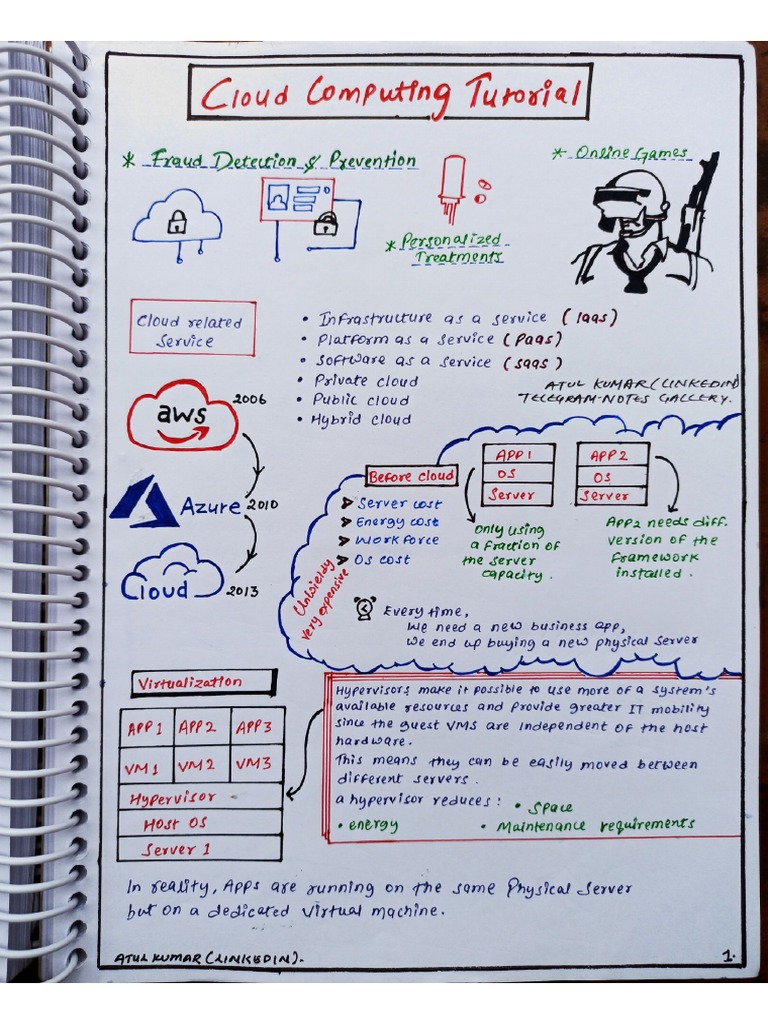 Cloud Computing Tutorial
* Fraud Detection & Prevention
* Online Games
* Personalized
Treatments
Cloud related
Service
• Infrastructure as a service (Iaas)
• Platform as a service (Paas)
• Software as a service (saas)
• Private cloud
• Public cloud
• Hybrid cloud
ATUL KUMAR (LINKEDIN)
TELEGRAM-NOTES GALLERY.
aws
2006
Azure
2010
Cloud
2013
Before cloud
➤ Server cost
➤ Energy cost
➤ Work force
➤ OS cost
Unwieldy
very expensive
APP 1
OS
Server
APP 2
OS
Server
only using
a fraction of
the server
capacity.
APP2 needs diff.
version of the
framework
installed.
Every time,
we need a new business app,
we end up buying a new physical server
Virtualization
APP 1 APP 2 APP 3
VM 1 VM 2 VM 3
Hypervisor
Host OS
Server 1
Hypervisors make it possible to use more of a system's
available resources and provide greater IT mobility
since the guest VMS are independent of the host
hardware.
This means they can be easily moved between
different servers.
a hypervisor reduces: • Space
• energy • Maintenance requirements
In reality, Apps are running on the same Physical Server
but on a dedicated virtual machine.
ATUL KUMAR (LINKEDIN).
1.